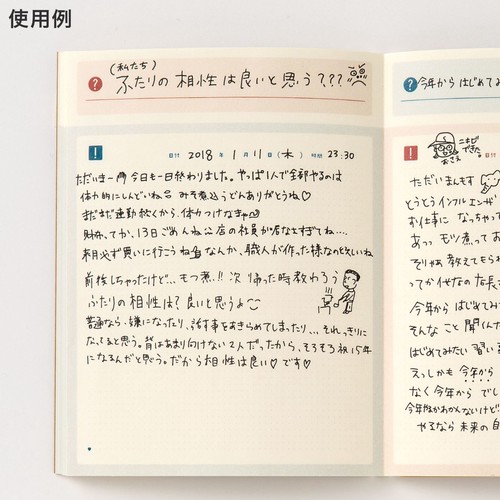 使用例
(私たち)
? ふたりの相性は良いと思う???
! 日付 2018年 1月11日(木) 時間 23:30
ただいまー 今日も一日終わりました。やっぱ1人で全部やるのは
体力的にしんどいね みそ煮込うどんありがとうね♡
まだまだ連勤続くから、体力つけなきゃ
財布、てか、13日ごめんね 公店の社員が居なさすぎてね…
来月必ず買いに行こうね なんか、職人が作った様なのとかいいね
前後しちゃったけど… もつ煮!! 次帰った時教わろう
ふたりの相性は? 良いと思うよ
普通なら、嫌になったり、話す事をあきらめてしまったり… それっきりに
なってると思う。背はあまり向けない2人だったから、そろそろ祝15年
になるんだと思う。だからお相性は良い♡です♡
? 今年から はじめてみ
! ニキビできた。
おさえ
ただいまんもす
とうとうインフルエンザ
お仕事に なっちゃって
あっ モツ煮ってお
そりゃあ教えてもらわ
ってか 任せなの店長さ
今年から はじめてみ
そんな こと 聞くんす
はじめてみたい 習い
えっしかも 今年から
なく今年から でし
今年ほかわかんないけど
やるなら 未来の自